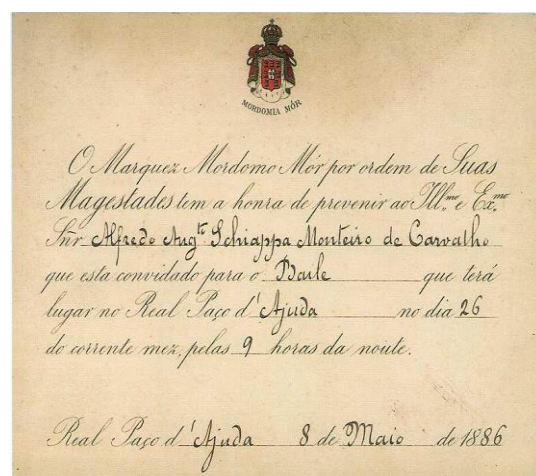 MORDOMIA MÓR
O Marquez Mordomo Mór por ordem de Suas
Magestades tem a honra de prevenir ao Ill.mo e Ex.mo
Snr Alfredo Aug.to Schiappa Monteiro de Carvalho
que esta convidado para o Baile que terá
lugar no Real Paço d'Ajuda no dia 26
do corrente mez, pelas 9 horas da noute.
Real Paço d'Ajuda 8 de Maio de 1886